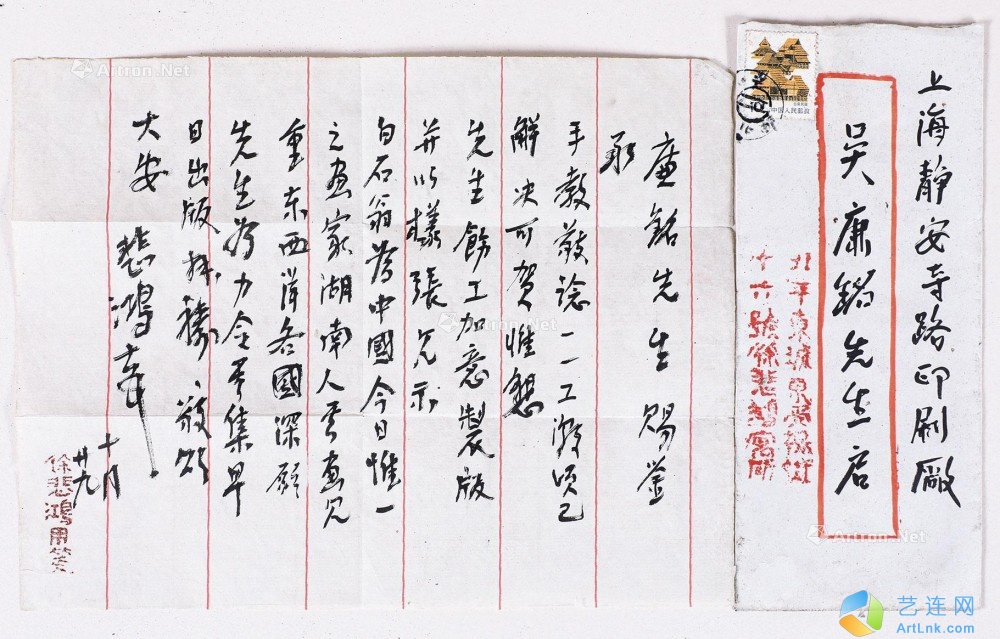 上海靜安寺路印刷廠
吴廉銘先生启
北平東城東受祿街
十六號徐悲鴻寓所
中国人民邮政
廉銘先生賜鉴
承
手教敬谂一一工潮顷已
解决可贺惟懇
先生飭工加意製版
并以樣張見示
白石翁為中國今日惟一
之畫家湖南人其畫見
重东西洋各國深願
先生为力令其集早
日出版拜禱、敬颂
大安 悲鴻
十月
廿九
徐悲鴻用笺
Artron.Net
艺连网
ArtLnk.com